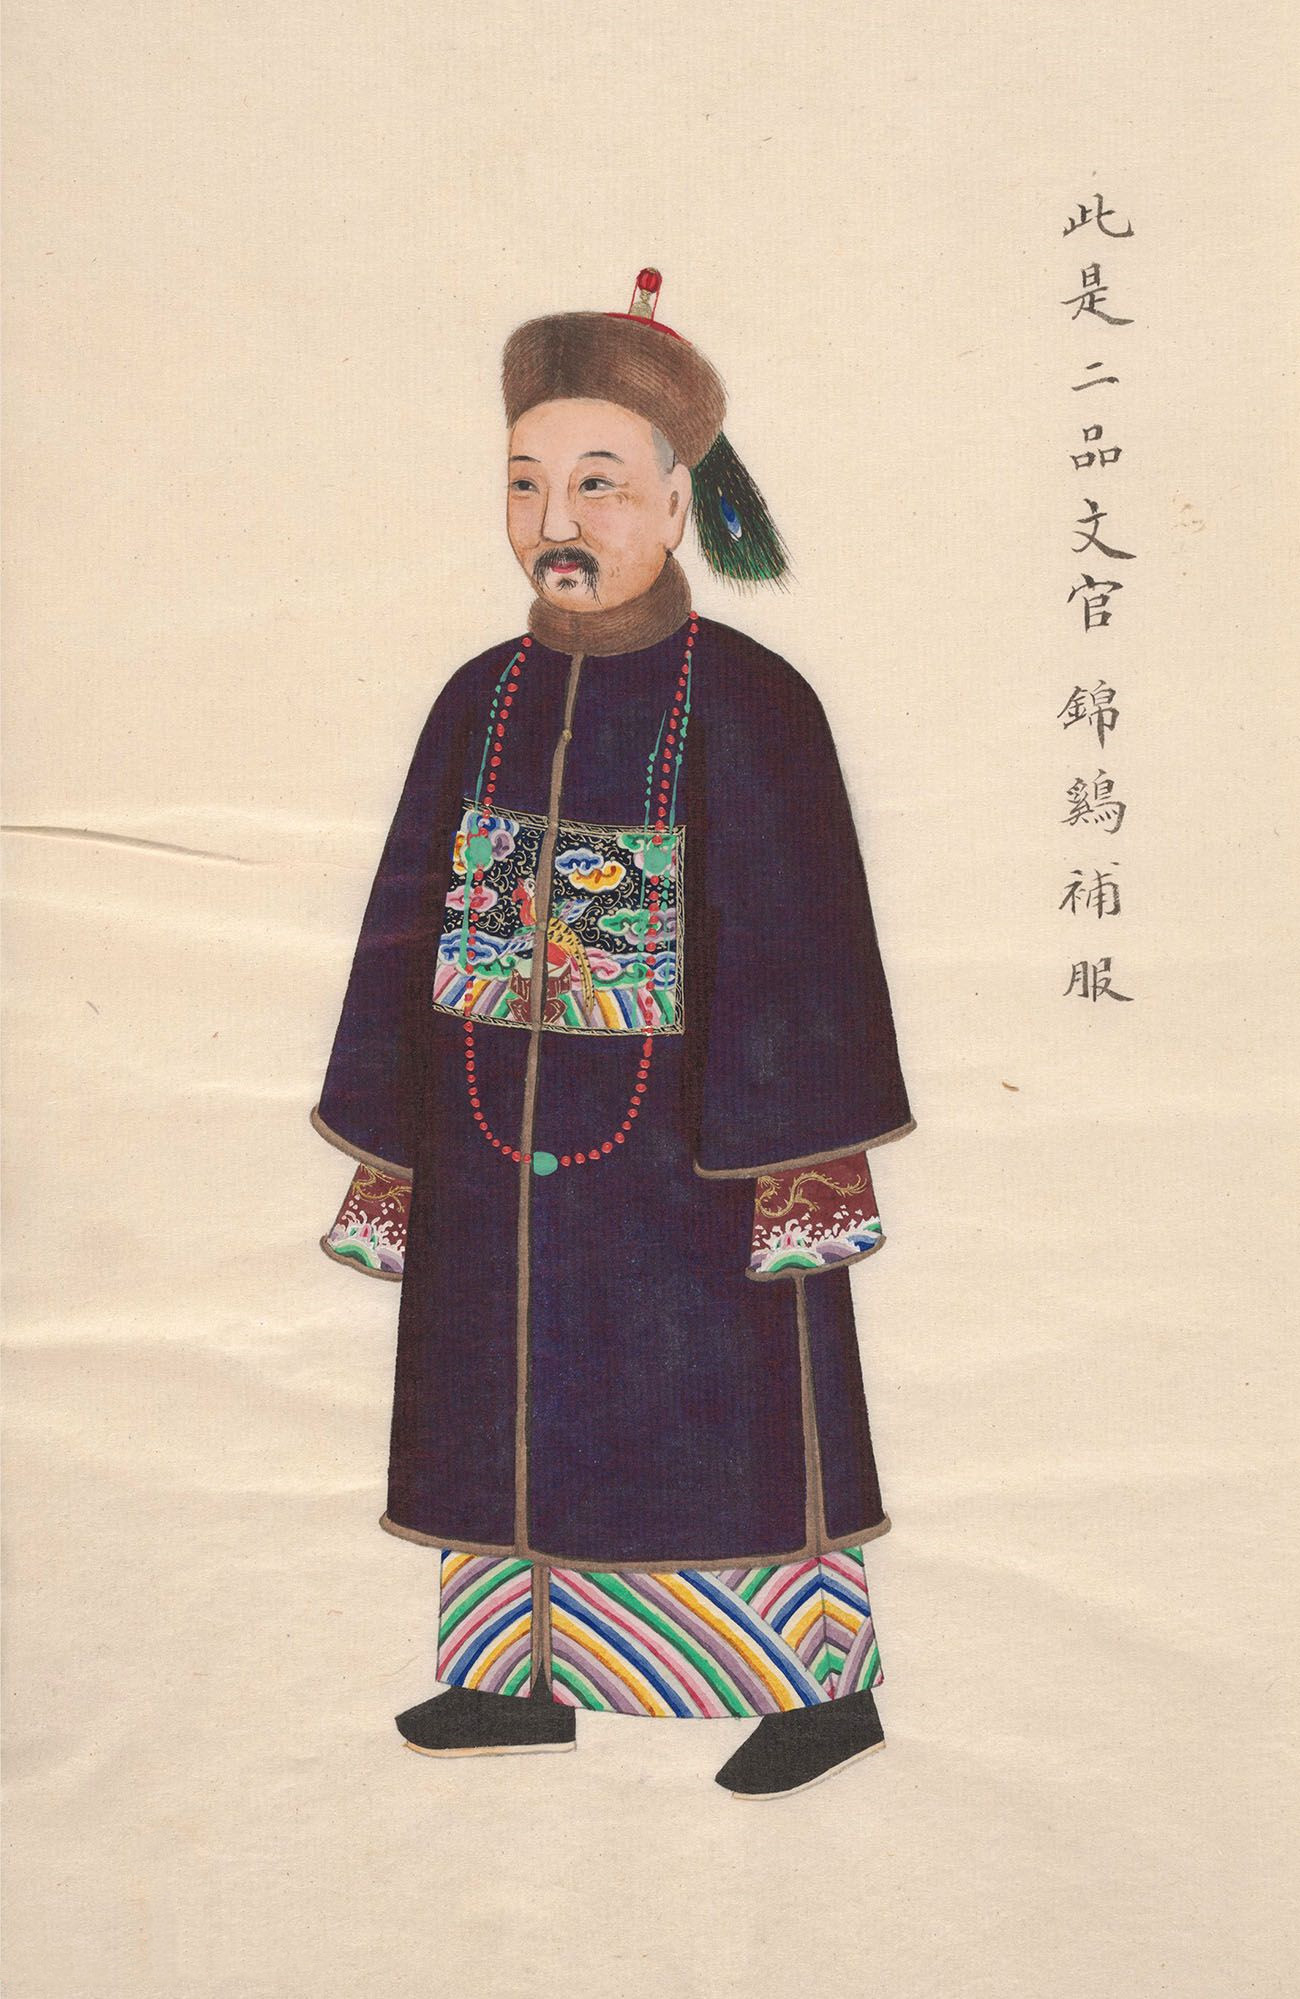 此是二品文官 錦鷄補服